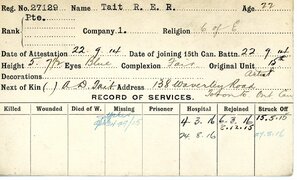 Reg. No. 27129 Name Tait R. E. R. Age 22
Rank Pte. Company 1. Religion C of E
Date of Attestation 22.9.14 Date of joining 15th Can. Battn. 22.9.14
Height 5. 7½ Eyes Blue Complexion Fair Original Unit 15th
Decorations Artist
Next of Kin ( ) A. D. Tait Address 138 Waverley Road
Toronto Ont Can
RECORD OF SERVICES.
Killed Wounded Died of W. Missing Prisoner Hospital Rejoined Struck Off
4.3.16 6.3.16 15.5.15
24.8.16 8.12.15 27.8.16